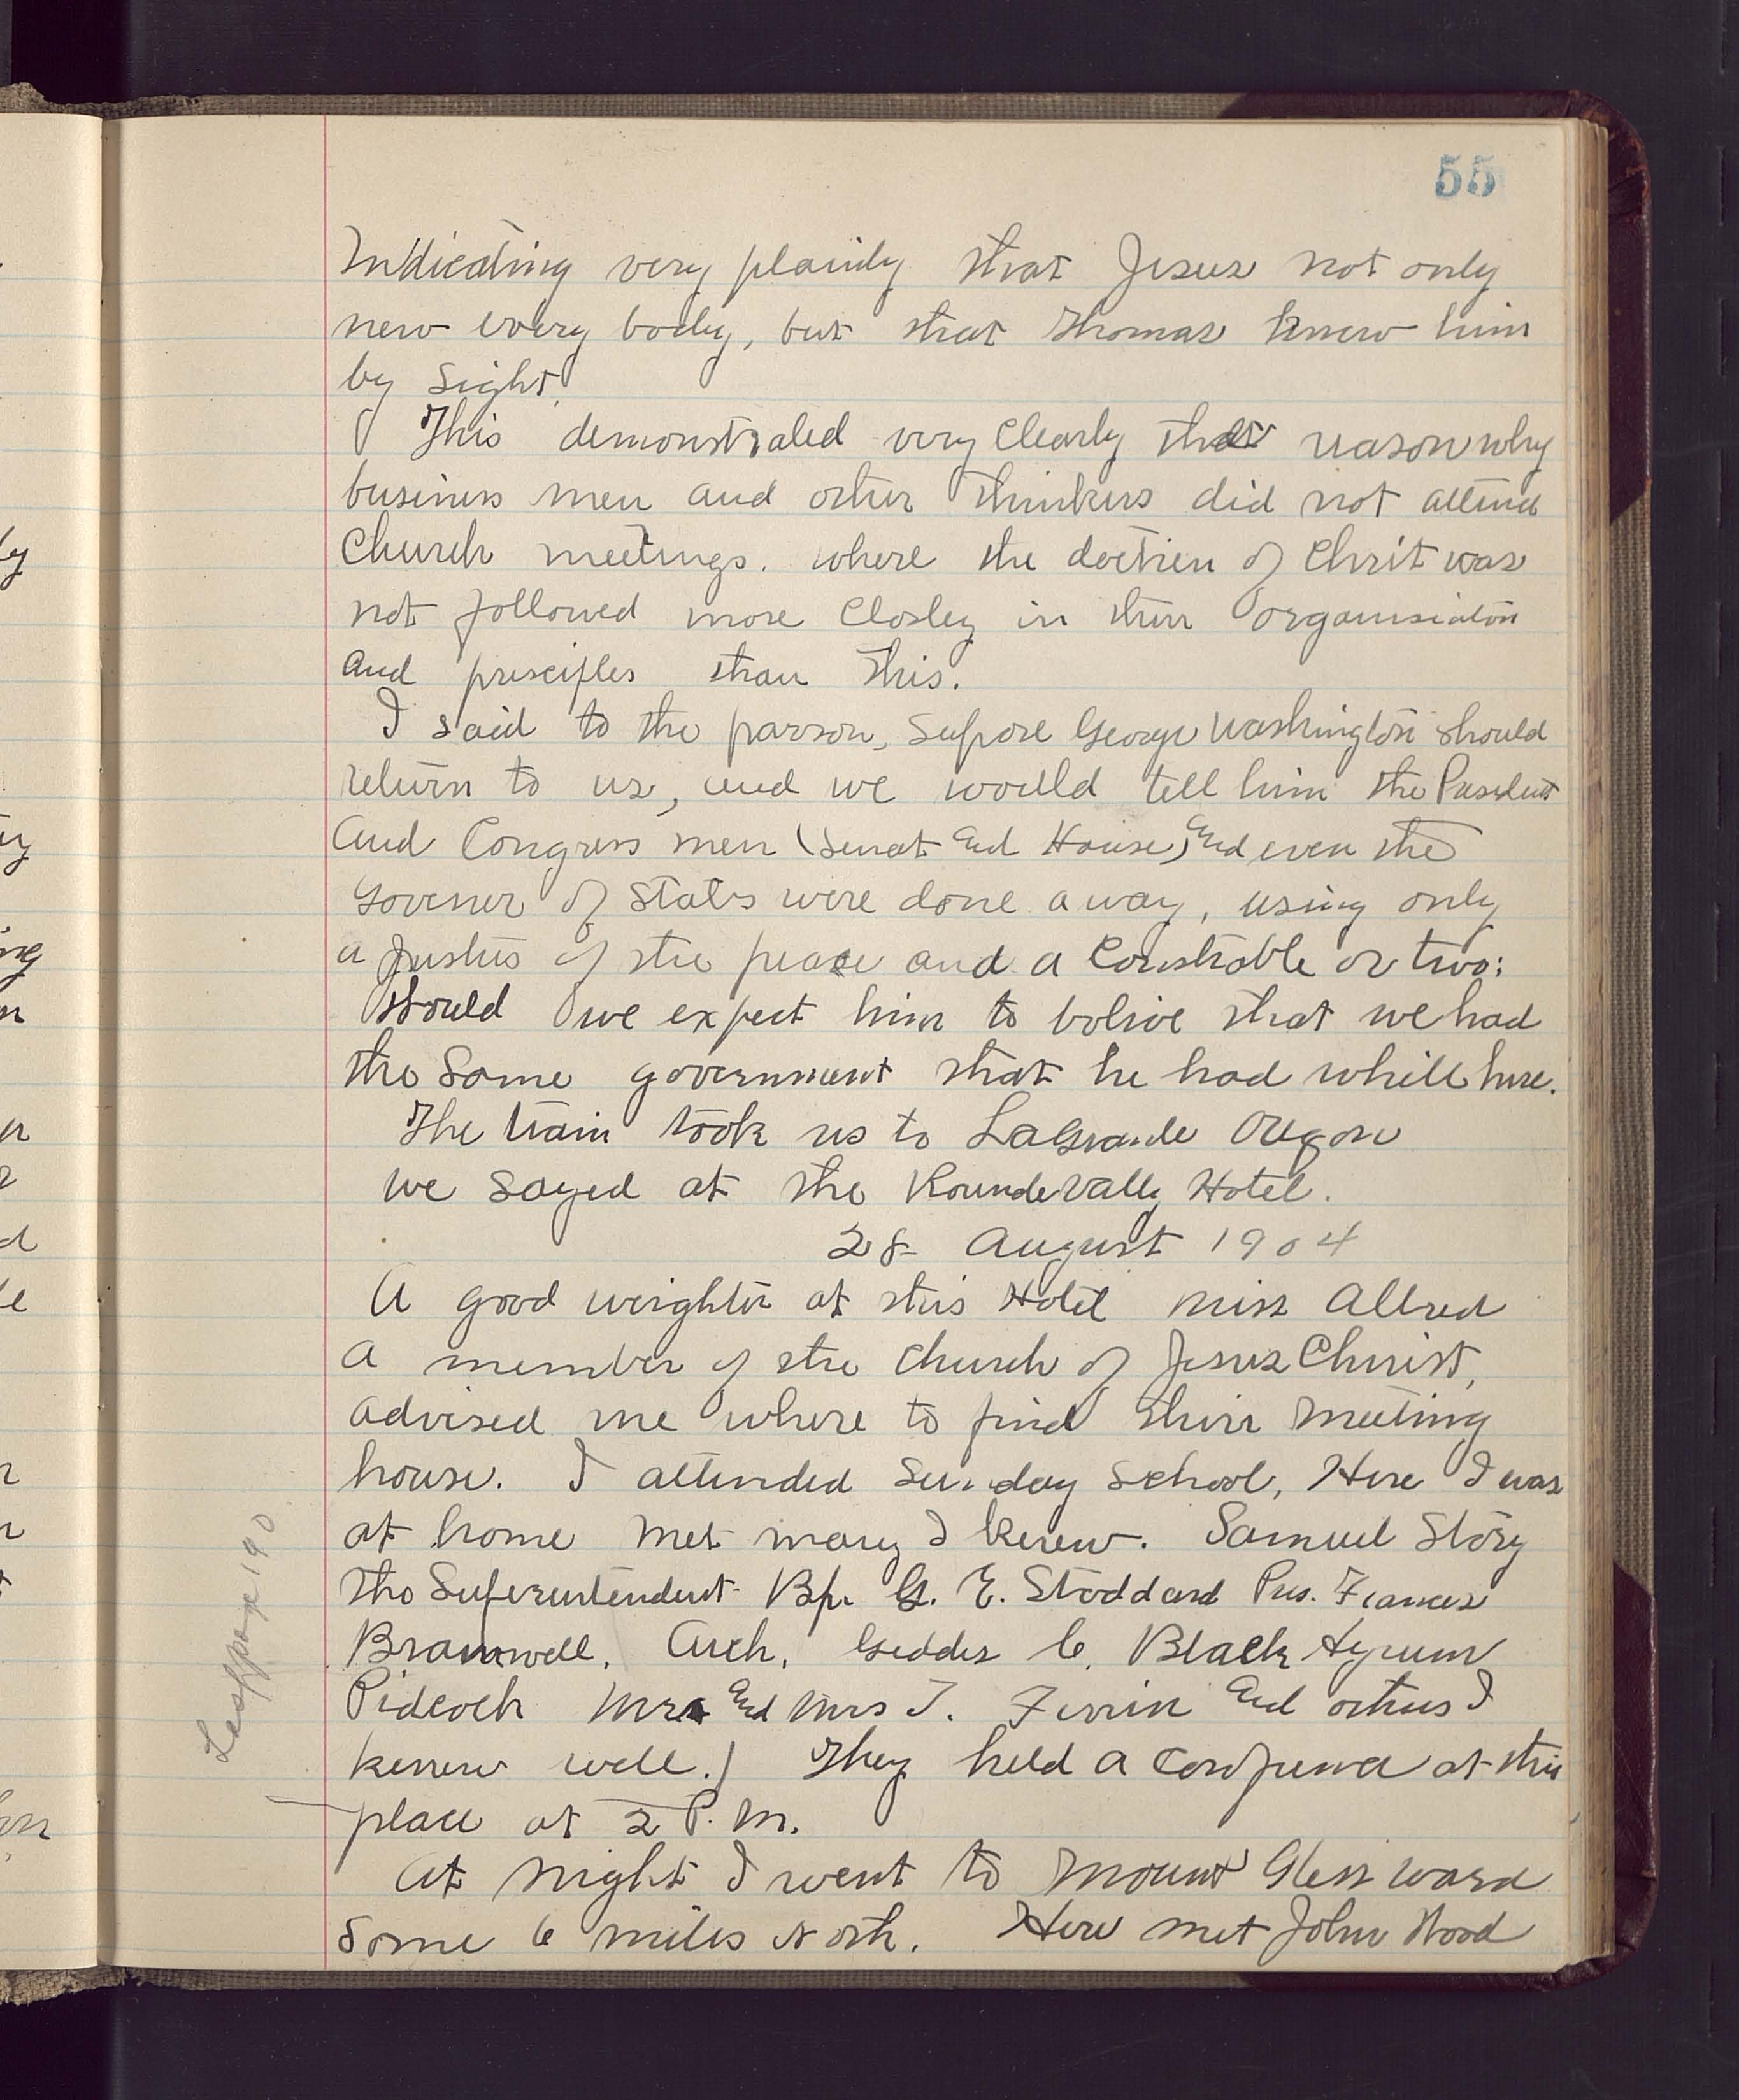 55
Indicating very plainly that Jesus not only
new every body, but that Thomas knew him
by sight.
This demonstraled very clearly that reason why
business men and other thinkers did not attend
Church meetings. where the doctrien of Christ was
not followed more Closley in their organisiation
and prisciples than this.
I said to the parson, Supose George Washington should
return to us, and we would tell him the President
and Congress men (Senat and House) and even the
Govener of States were done away, using only
a Justis of the peace and a Constable or two:
Should we expect him to belive that we had
the Same government that he had while here.
The train took us to LaGrande Oregon
we sayed at the RoundeVally Hotel.
28 August 1904
A good weighter at this Hotel miss Allred
a member of the Church of Jesus Christ,
advised me where to find their meeting
house. I attended Sunday School, Here I was
at home met many I knew. Samuel Story
the Superentendent Bp. G. E. Stoddard Pres. Frances
Bramwell, Arch, Geddes C, Black Hyrum
Pidcock Mr and Mrs J. Ferrin and others I
kenew well.) They held a Conference at this
place at 2 P.M.
At night I went to Mount Glen Ward
Some 6 miles North. Here met John Wood
190